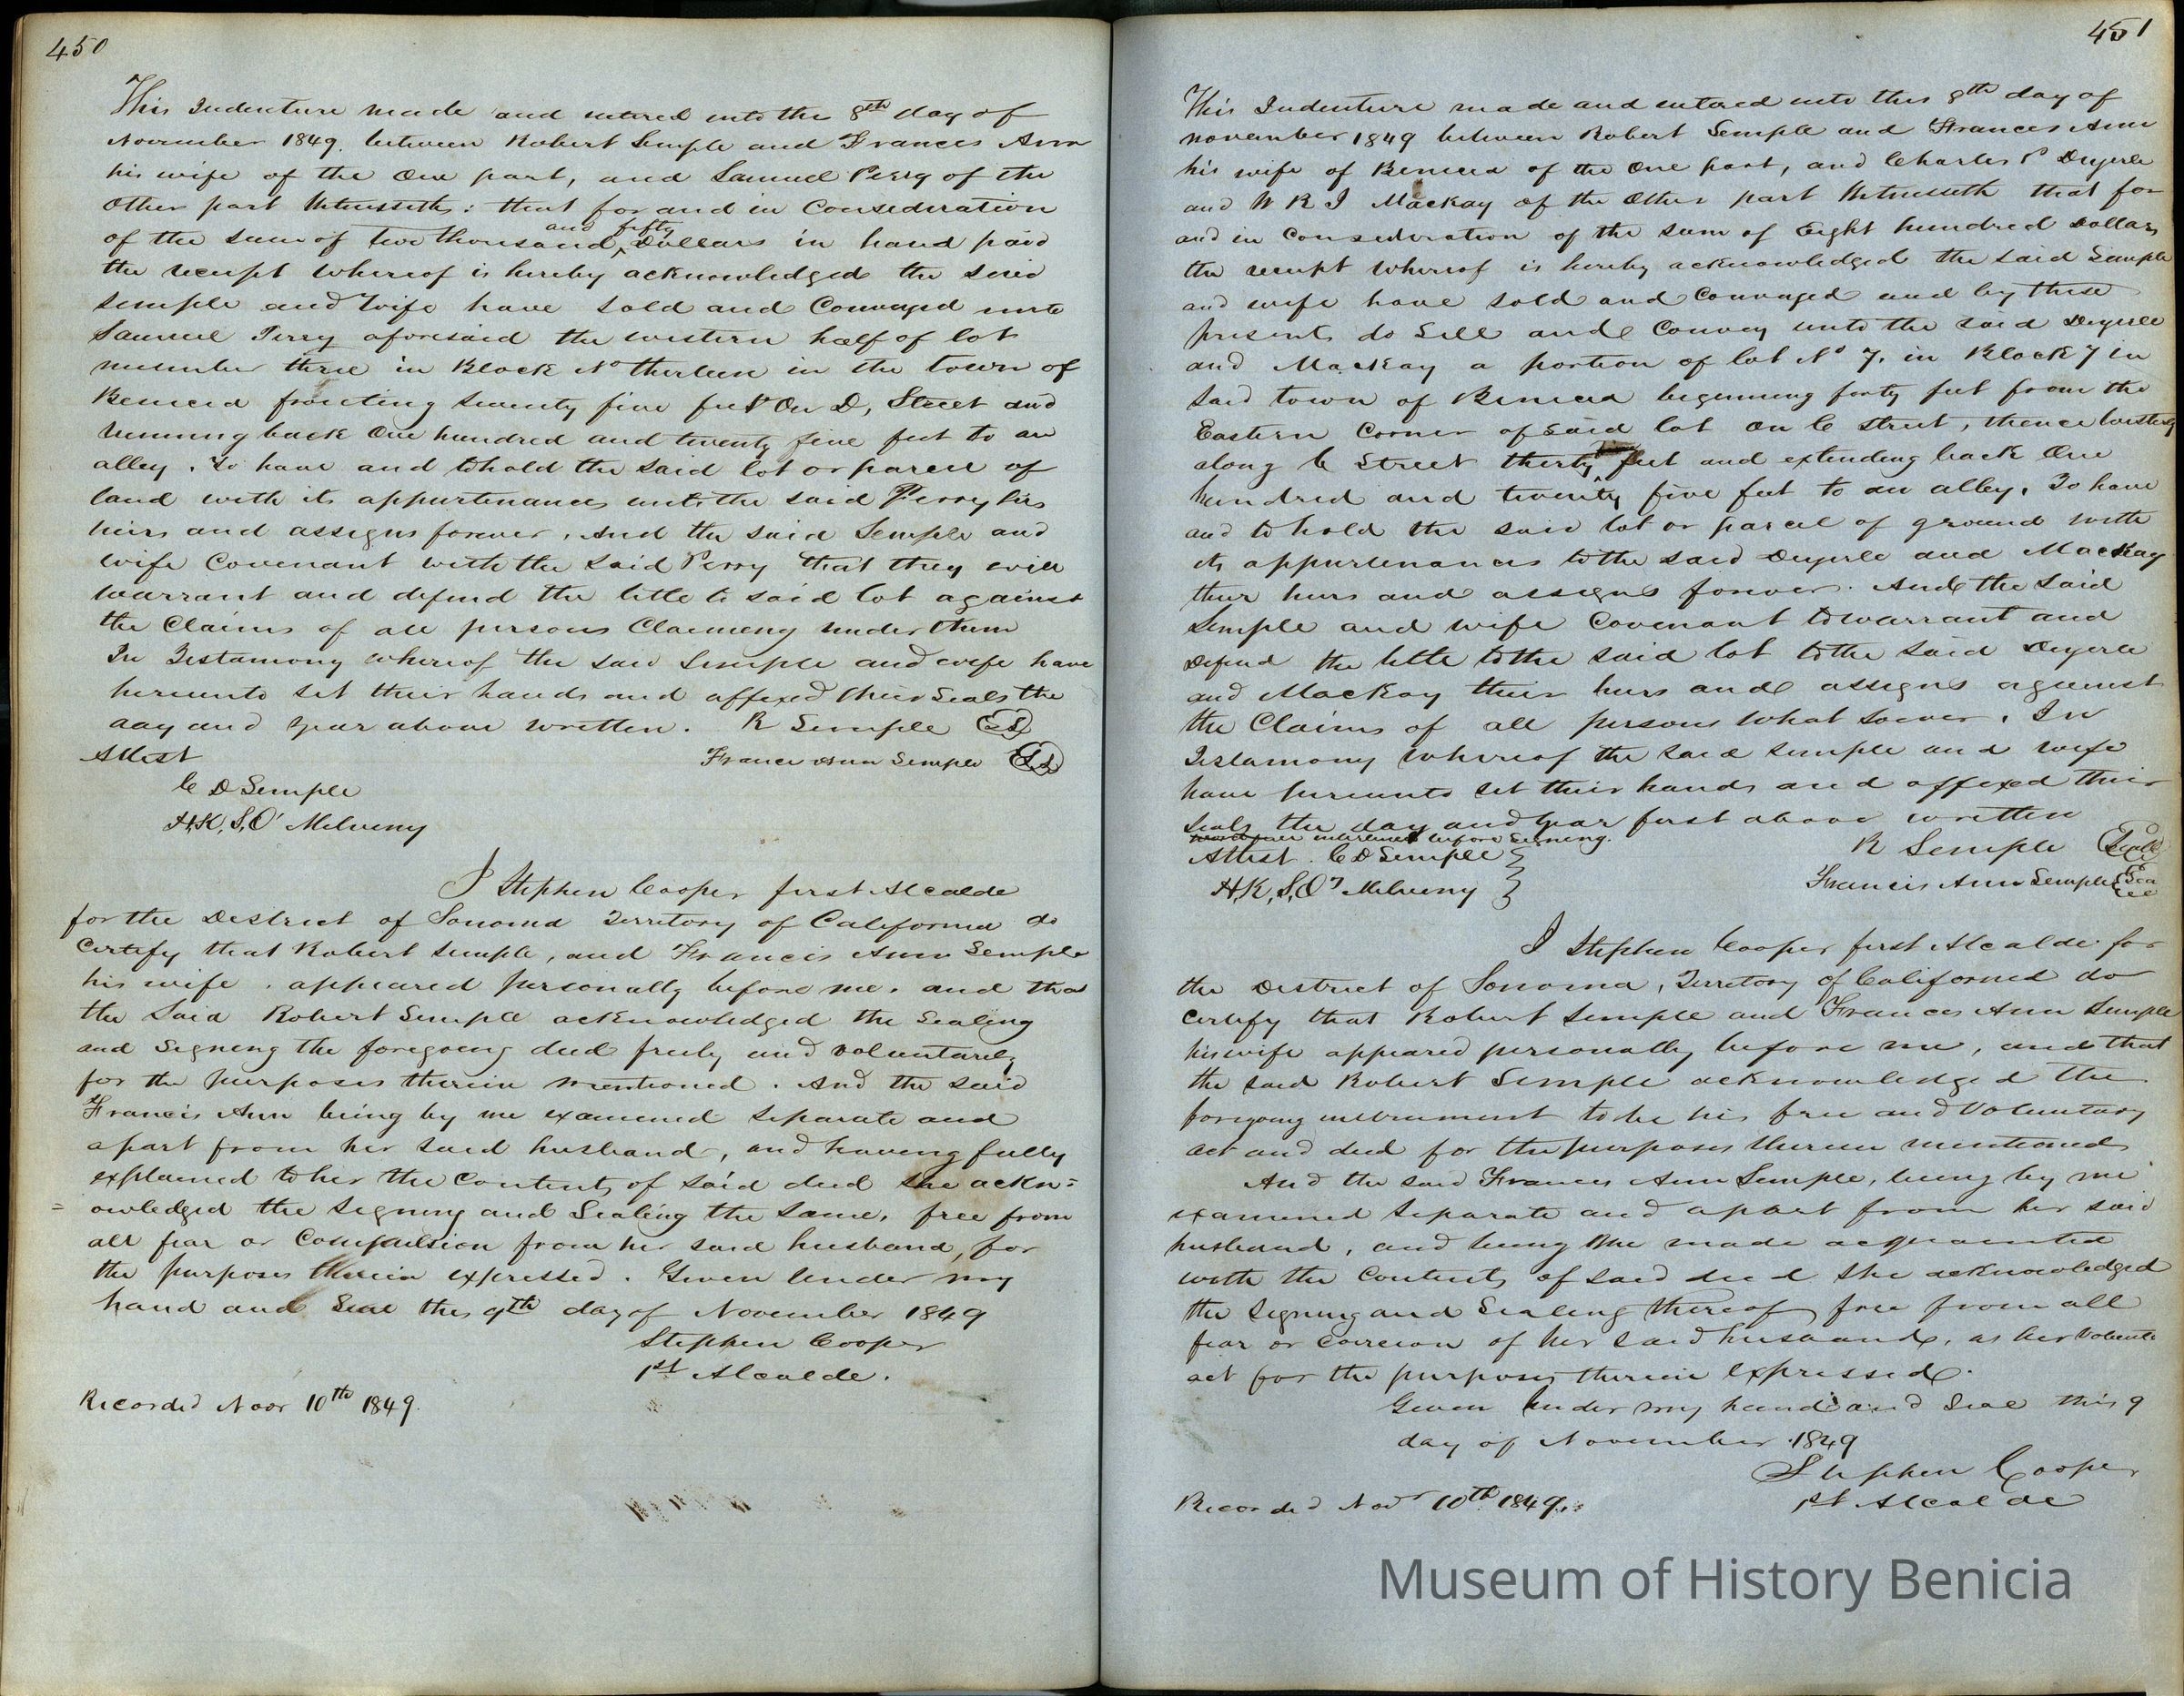 450
This Indenture made and entered into the 8th day of
November 1849. between Robert Semple and Frances Ann
his wife of the One part, and Samuel Perry of the
Other part Witnesseth: that for and in Consideration
and fifty
of the sum of two thousand ^ Dollars in hand paid
the receipt whereof is hereby acknowledged the said
Semple and Wife have Sold and Conveyed unto
Samuel Perry aforesaid the western half of lot
number three in Block No therteen in the town of
Benicia fronting seventy five feet On D, Street and
running back One hundred and twenty five feet to an
alley. To have and to hold the said lot or parcel of
land with its appurtenances unto the said Perry his
heirs and assigns forever. And the said Semple and
wife Covenant with the said Perry that they will
warrant and defend the title to said lot against
the Claims of all persons Claiming under them
In Testamony whereof the said Semple and wife have
hereunto set their hands and affixed their Seals the
day and year above written. R Semple
Attest Frances Ann Semple
C D Semple
H,K,S,O' Melveny
I Stephen Cooper first Alcalde
for the District of Sonoma Territory of California do
Certify that Robert Semple, and Francis Ann Semple
his wife. appeared personally before me. and that
the Said Robert Semple acknowledged the Sealing
and Signing the foregoing deed freely and voluntarily
for the purposes therein mentioned. And the said
Francis Ann being by me examined Separate and
apart from her said husband, and having fully
explained to her the Contents of said deed she ackn=
=owledged the Signing and Sealing the Same, free from
all fear or Compulsion from her said husband, for
the purposes therein expressed. Given Under my
hand and Seal this 9th day of November 1849
Stephen Cooper
1st Alcalde.
Recorded Novr 10th 1849.
451
This Indenture made and entered into this 8th day of
November 1849 between Robert Semple and Frances Ann
his wife of Benicia of the One part, and Charles P Deyerle
and W R J Mackay of the Other part Witnesseth that for
and in Consideration of the sum of Eight hundred Dollars
the receipt whereof is hereby acknowledged the said Semple
and wife have sold and Conveyed and by these
presents do Sell and Convey unto the said Deyerle
and MacKay a portion of lot No 7. in Block 7 in
Said town of Benicia beginning forty feet from the
Eastern Corner of said lot on C Street, thence westerly
along C Street thirty feet and extending back One
hundred and twenty five feet to an alley. To have
and to hold the said lot or parcel of ground with
its appurtenances to the said Deyerle and MacKay
their heirs and assigns forever. And the said
Semple and wife Covenant to warrant and
Defend the title to the said lot to the said Deyerle
and MacKay their heirs and assigns against
the Claims of all persons What soever. In
Testamony Whereof the said Semple and wife
have hereunto set their hands and affixed their
seals the day and Year first above written
interlined before Signing.
Attest. C D Semple R Semple Seal
H,K,S,O' Melveny Francis Ann Semple
I Stephen Cooper first Alcalde for
the District of Sonoma, Territory of California do
Certify that Robert Semple and Frances Ann Semple
his wife appeared personally before me, and that
the said Robert Semple acknowledged the
foregoing instrument to be his free and Voluntary
act and deed for the purposes therein mentioned
And the said Frances Ann Semple, being by me
examined Separate and apart from her said
husband, and being made acquainted
with the Contents of said deed she acknowledged
the Signing and Sealing thereof free from all
fear or Coercion of her said husband. as her
act for the purposes therein expressed.
Given Under my hand and Seal this 9
day of November 1849
Stephen Cooper
1st Alcalde
Recorded Novr 10th 1849.
Museum of History Benicia